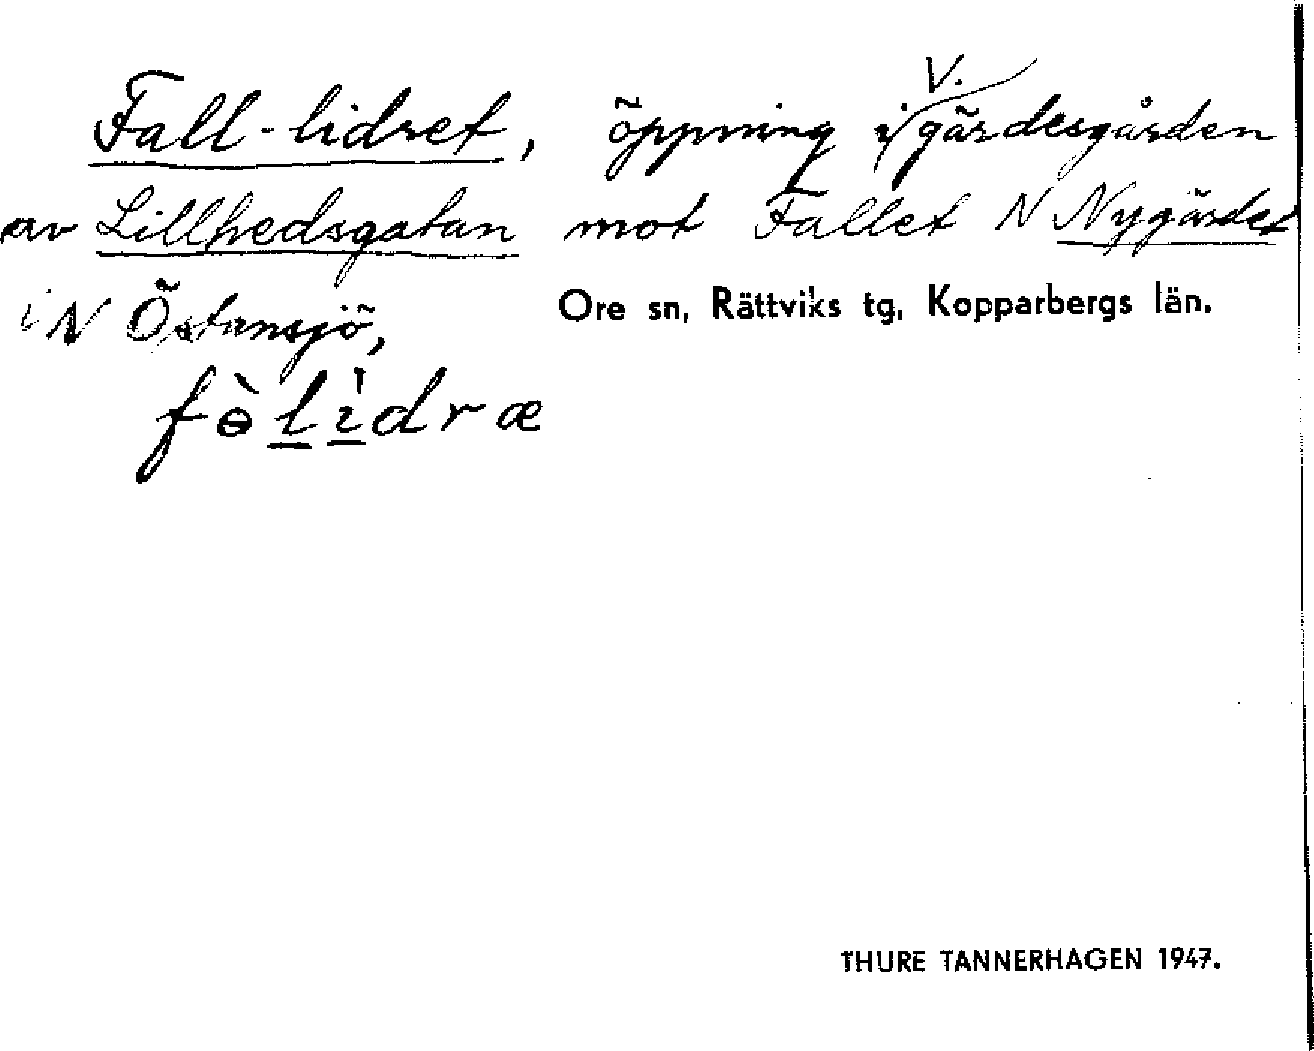 Fall-lidret, öppning i V. gärdesgården
av Lillhedsgatan mot Fallet N Nygärdet
i N Östansjö,
Ore sn, Rättviks tg, Kopparbergs län.
fɵ̀lìdræ
THURE TANNERHAGEN 1947.